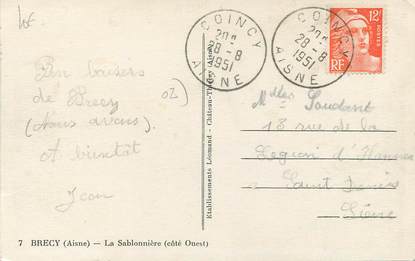 COINCY
28-8
1951
AISNE
COINCY
28-8
1951
AISNE
12F
POSTES
RF
Bons baisers
de Brecy
(Nous avons).
A bientôt
Jean
02)
Etablissements Léomand - Château-Thierry (Aisne)
Mlles
18 rue de la
Legion d'Honneur
Saint Denis
Seine
7 BRECY (Aisne) — La Sablonnière (côté Ouest)